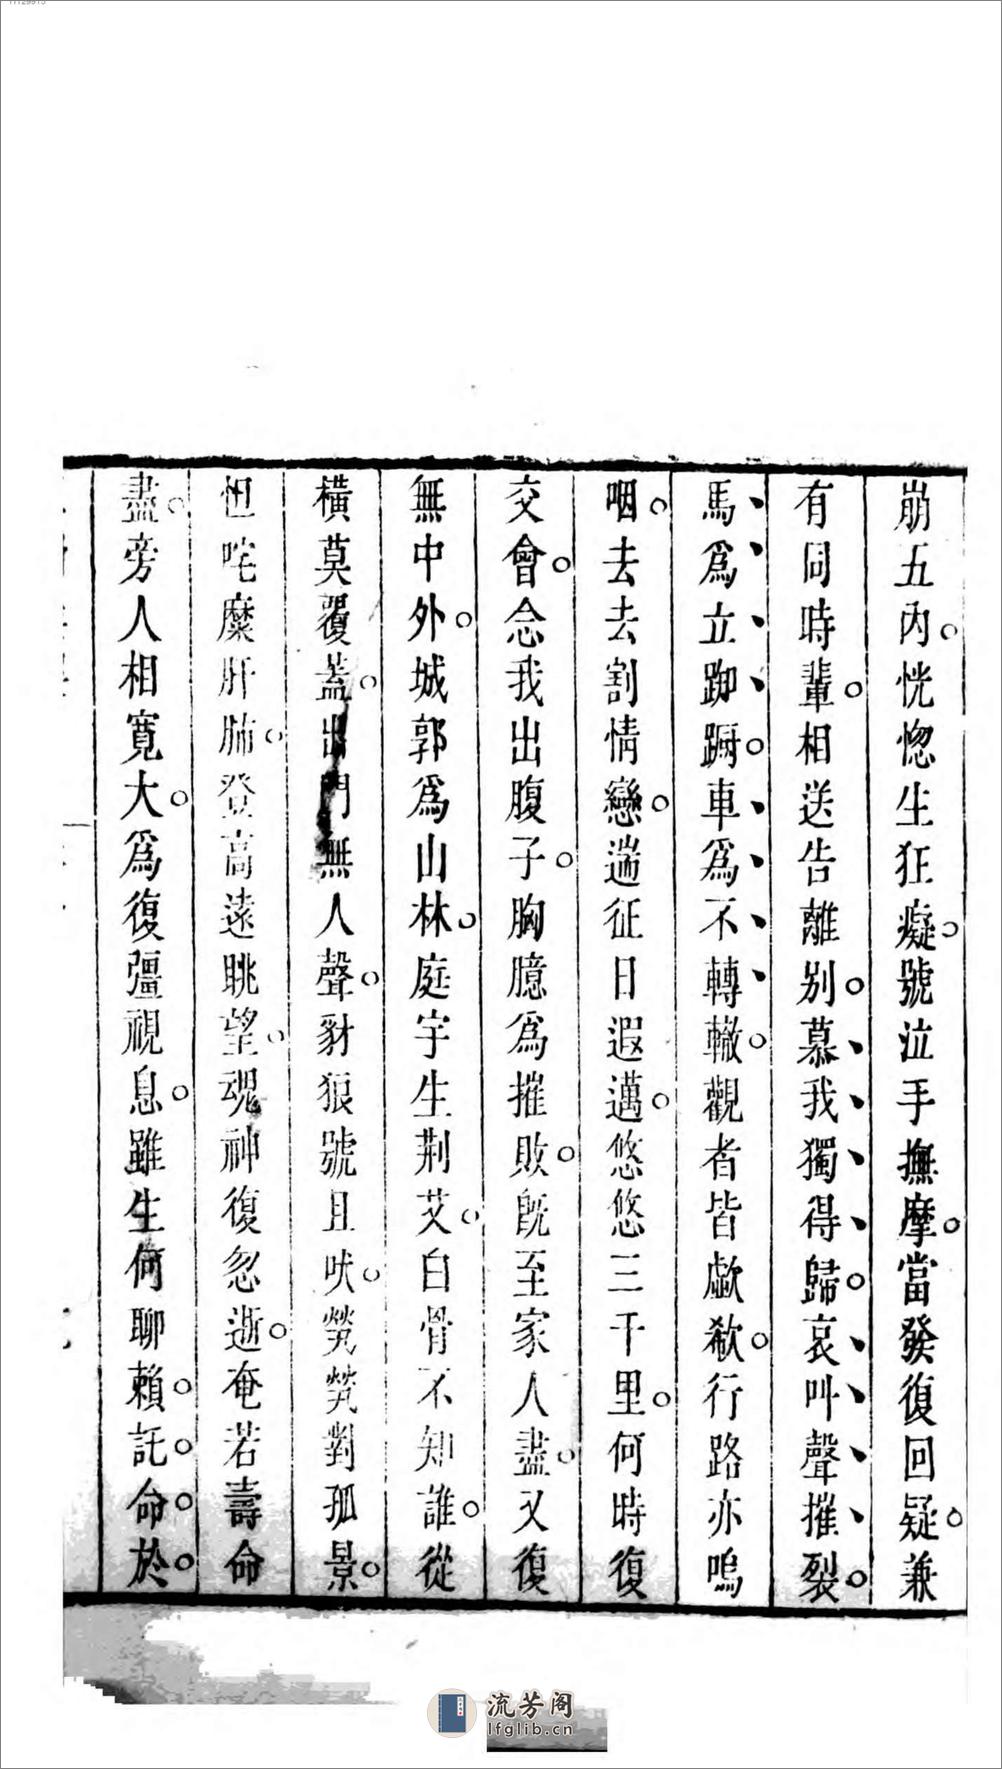 崩五內恍惚生狂癡號泣手撫摩當發復回疑兼
有同時輩相送告離別慕我獨得歸哀叫聲摧裂
馬爲立踟蹰車爲不轉轍觀者皆歔欷行路亦嗚
咽去去割情戀遄征日遐邁悠悠三千里何時復
交會念我出腹子胸臆爲摧敗旣至家人盡又復
無中外城郭爲山林庭宇生荆艾白骨不知誰從
橫莫覆蓋出門無人聲豺狼號且吠煢煢對孤景
怛咤糜肝肺登高遠眺望魂神復忽逝奄若壽命
盡旁人相寬大爲復彊視息雖生何聊賴託命於
流芳阁
lfglib.cn